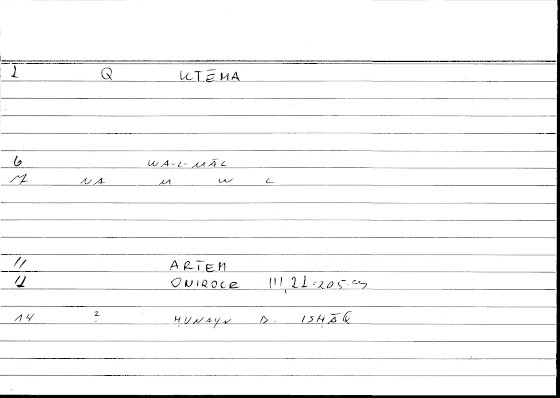 1 Q KTĒMA
6 WA-L-MĀL
7 NA M W L
11 ARTEM
12 ONIROCR III, 21 = 205
14 ? ḤUNAYN B. ISḤĀQ